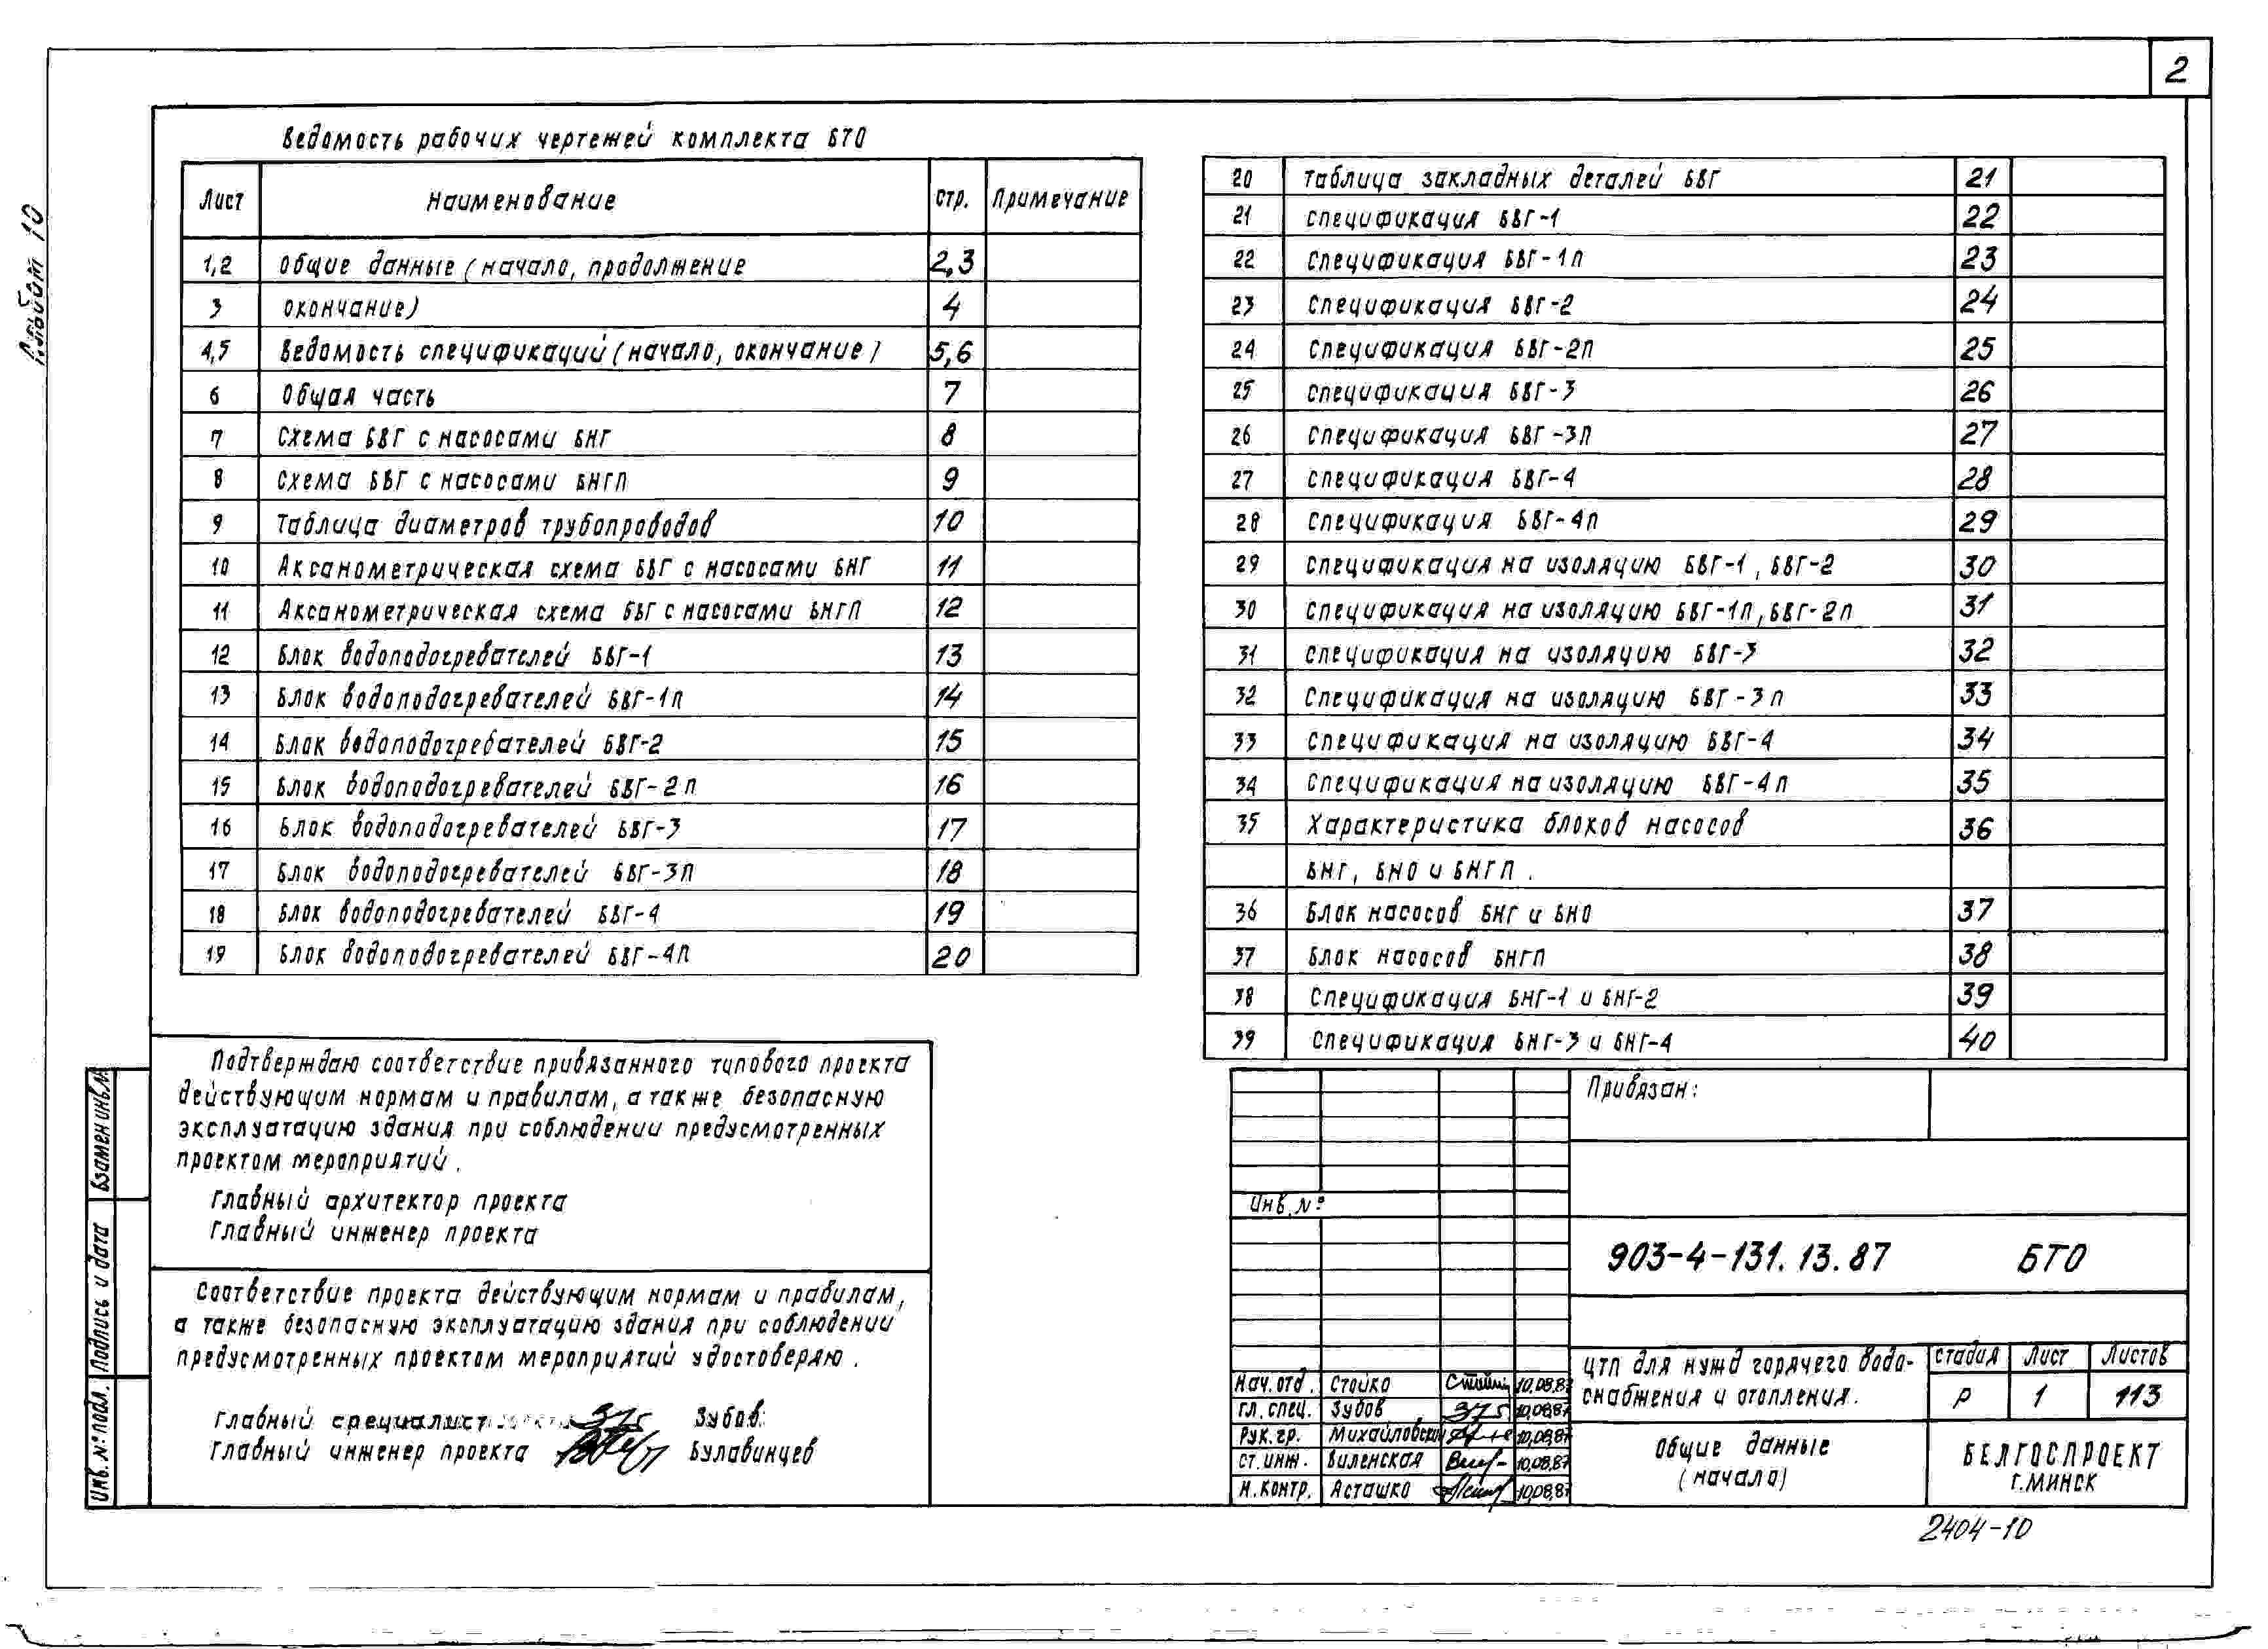 2
Альбом 10
Ведомость рабочих чертежей комплекта БТО
Лист Наименование Стр. Примечание
1,2 Общие данные (начало, продолжение 2,3
3 окончание) 4
4,5 Ведомость спецификаций (начало, окончание) 5,6
6 Общая часть 7
7 Схема БВГ с насосами БНГ 8
8 Схема БВГ с насосами БНГП 9
9 Таблица диаметров трубопроводов 10
10 Аксанометрическая схема БВГ с насосами БНГ 11
11 Аксанометрическая схема БВГ с насосами БНГП 12
12 Блок водоподогревателей БВГ-1 13
13 Блок водоподогревателей БВГ-1П 14
14 Блок водоподогревателей БВГ-2 15
15 Блок водоподогревателей БВГ-2П 16
16 Блок водоподогревателей БВГ-3 17
17 Блок водоподогревателей БВГ-3П 18
18 Блок водоподогревателей БВГ-4 19
19 Блок водоподогревателей БВГ-4П 20
20 Таблица закладных деталей БВГ 21
21 Спецификация БВГ-1 22
22 Спецификация БВГ-1П 23
23 Спецификация БВГ-2 24
24 Спецификация БВГ-2П 25
25 Спецификация БВГ-3 26
26 Спецификация БВГ-3П 27
27 Спецификация БВГ-4 28
28 Спецификация БВГ-4П 29
29 Спецификация на изоляцию БВГ-1, БВГ-2 30
30 Спецификация на изоляцию БВГ-1П, БВГ-2П 31
31 Спецификация на изоляцию БВГ-3 32
32 Спецификация на изоляцию БВГ-3П 33
33 Спецификация на изоляцию БВГ-4 34
34 Спецификация на изоляцию БВГ-4П 35
35 Характеристика блоков насосов 36
БНГ, БНО и БНГП.
36 Блок насосов БНГ и БНО 37
37 Блок насосов БНГП 38
38 Спецификация БНГ-1 и БНГ-2 39
39 Спецификация БНГ-3 и БНГ-4 40
Подтверждаю соответствие привязанного типового проекта
действующим нормам и правилам, а также безопасную
эксплуатацию здания при соблюдении предусмотренных
проектом мероприятий.
Главный архитектор проекта
Главный инженер проекта
Соответствие проекта действующим нормам и правилам,
а также безопасную эксплуатацию здания при соблюдении
предусмотренных проектом мероприятий удостоверяю.
Главный специалист Зубов
Главный инженер проекта Булавинцев
Взамен инв.№
Подпись и дата
Инв. № подл.
Привязан:
Инв. №
903-4-131.13.87 БТО
Нач. отд. Стойко 10.08.87
Гл. спец. Зубов 10.08.87
Рук. гр. Михайловский 10.08.87
Ст. инж. Виленская 10.08.87
Н. контр. Асташко 10.08.87
ЦТП для нужд горячего водо-
снабжения и отопления.
Стадия Лист Листов
Р 1 113
Общие данные
(начало)
БЕЛГОСПРОЕКТ
г. МИНСК
2404-10